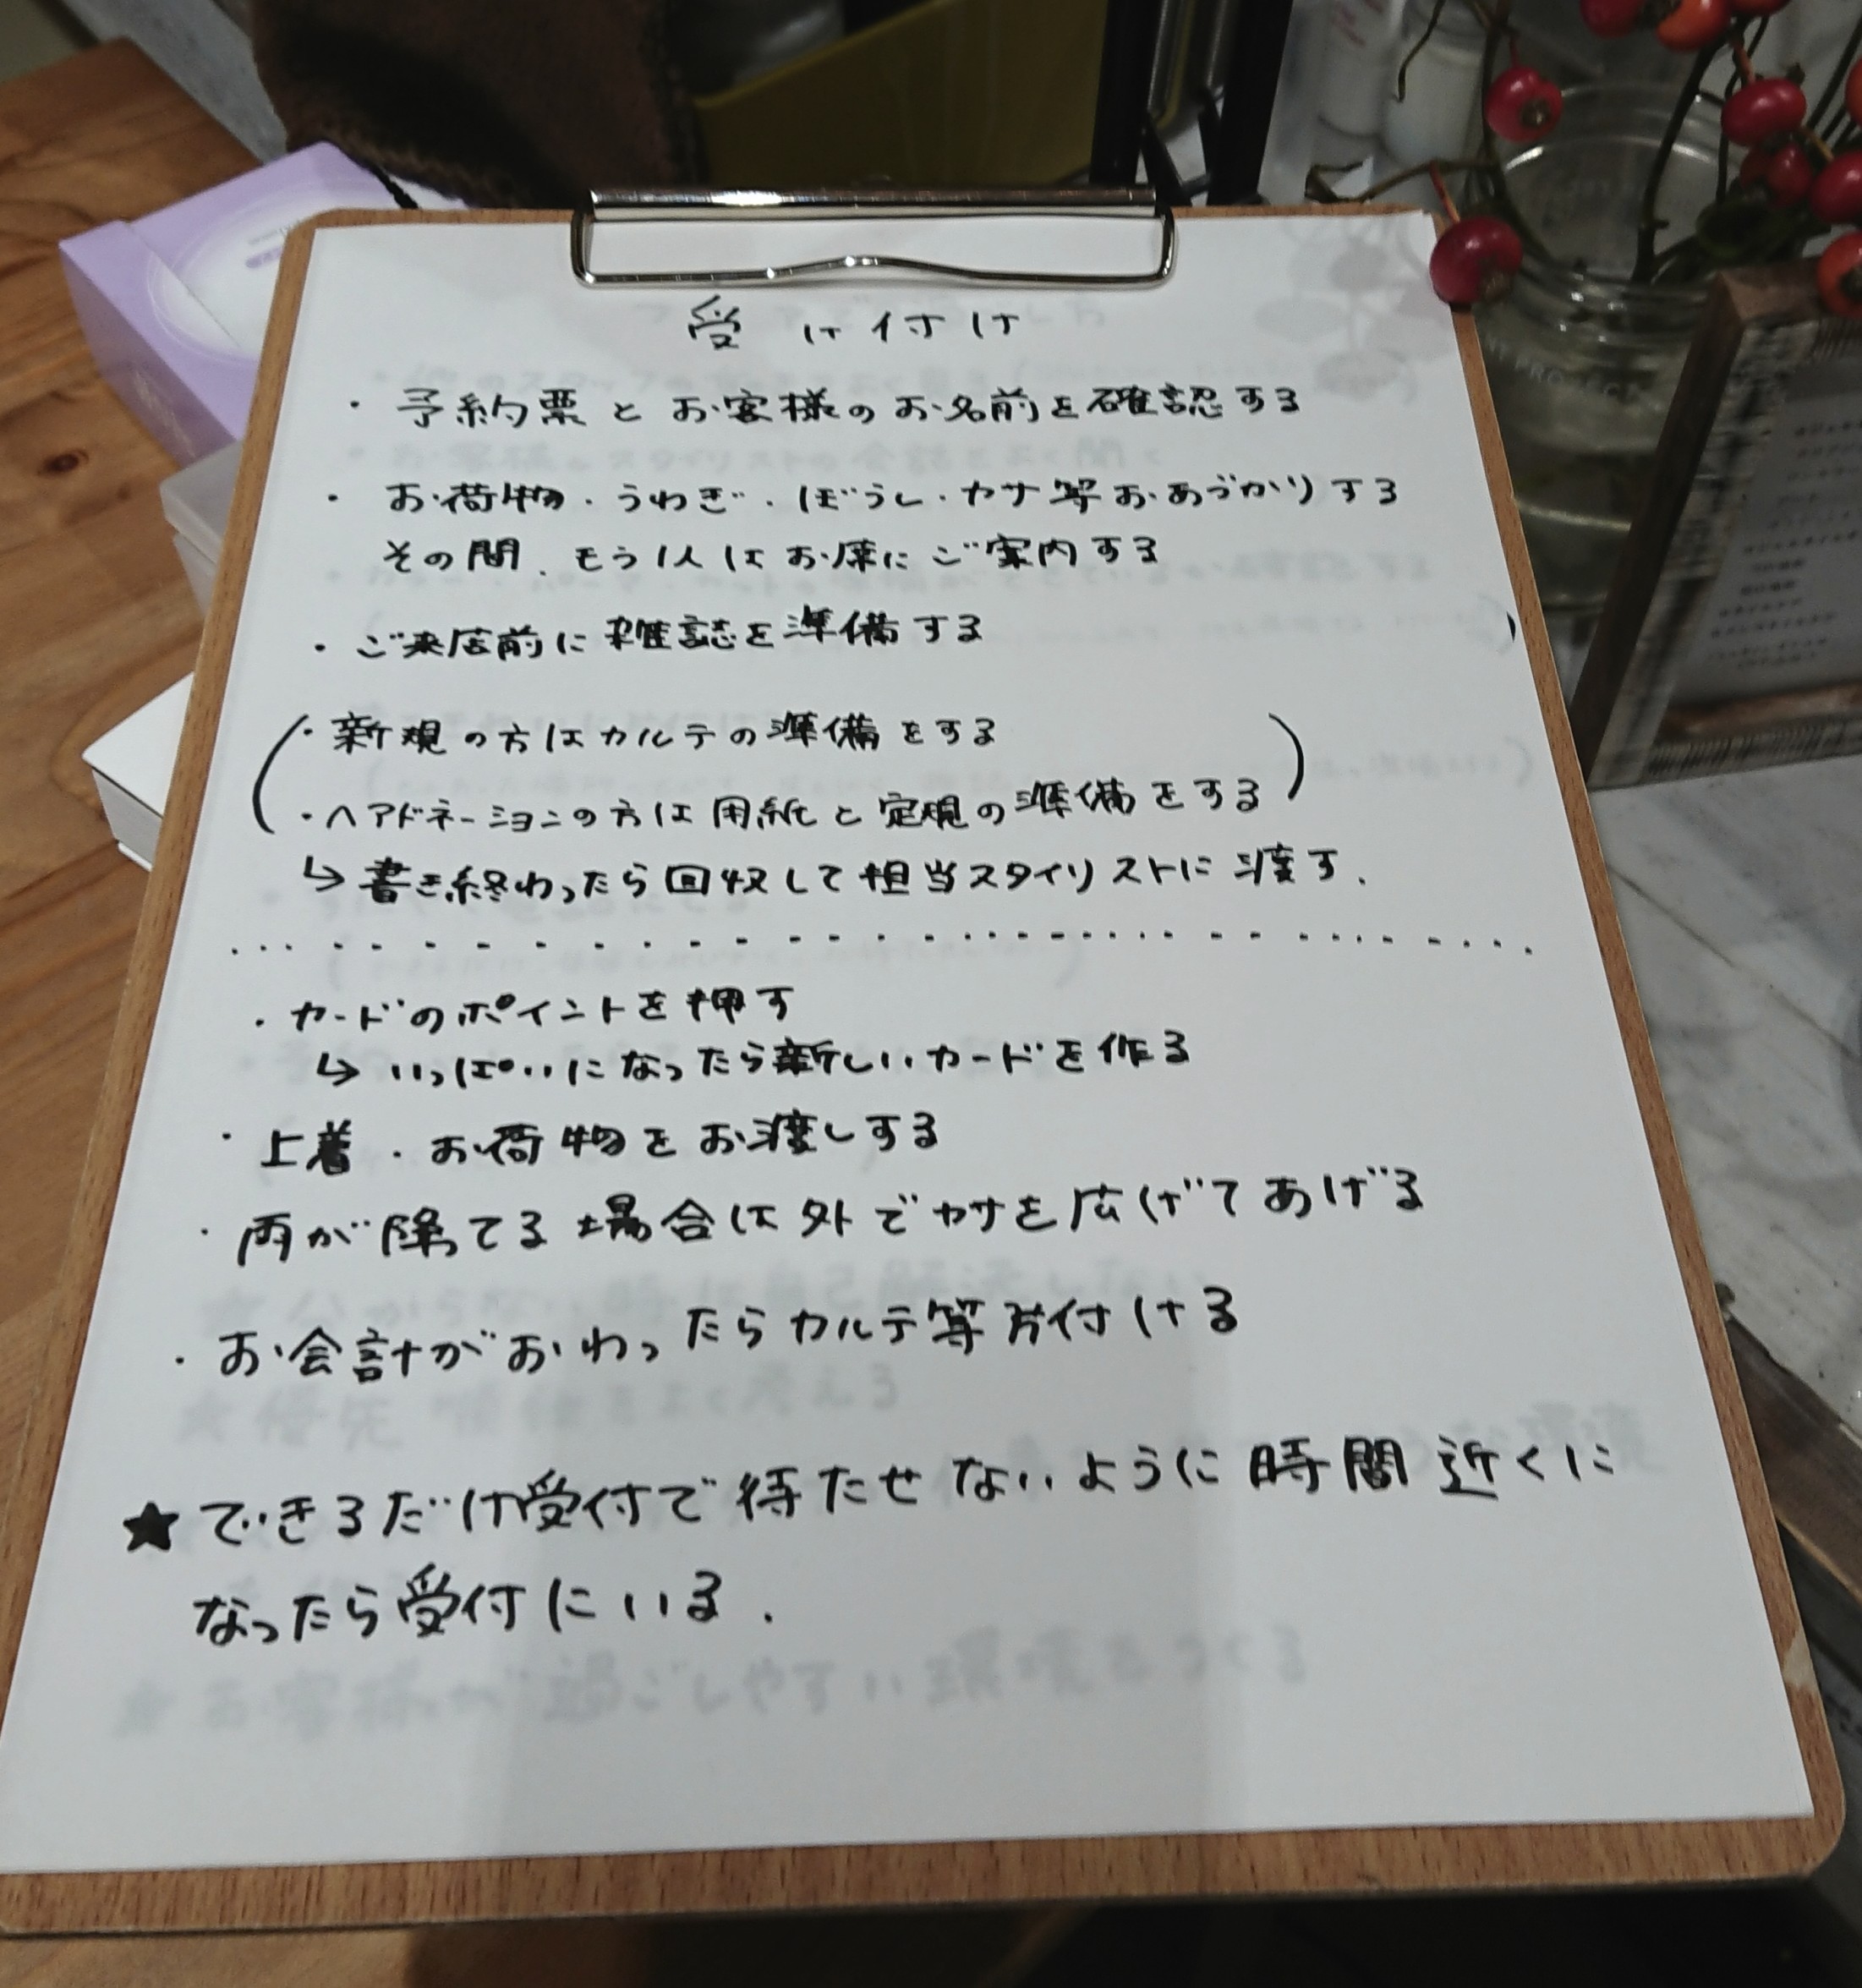 受け付け
・予約票とお客様のお名前を確認する
・お荷物・うわぎ・ぼうし・カサ等おあづかりする
その間、もう1人はお席にご案内する
・ご来店前に雑誌を準備する
(・新規の方はカルテの準備をする
・ヘアドネーションの方は用紙と定規の準備をする)
↳書き終わったら回収して担当スタイリストに渡す.
・カードのポイントを押す
↳いっぱいになったら新しいカードを作る
・上着・お荷物をお渡しする
・雨が降ってる場合は外でカサを広げてあげる
・お会計がおわったらカルテ等片付ける
★できるだけ受付で待たせないように時間近くに
なったら受付にいる.
★お客様が過ごしやすい環境をつくる